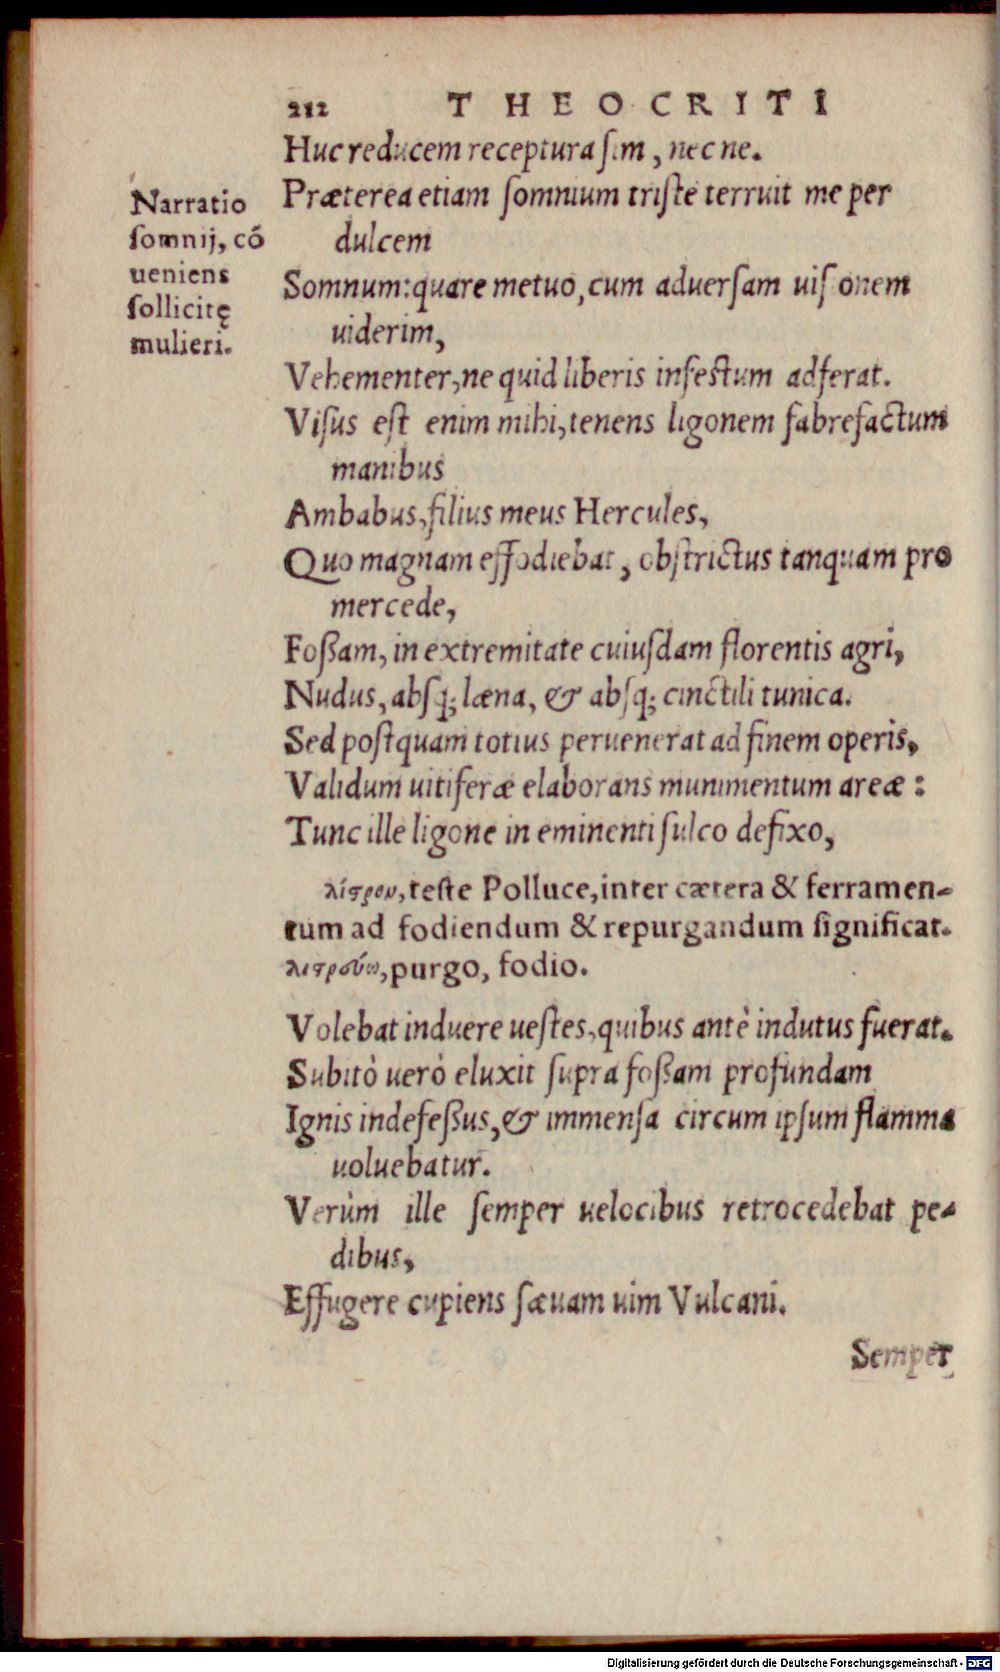 212 THEOCRITI
Huc reducem receptura sim, nec ne.
Narratio
somnij, cō
ueniens
sollicitę
mulieri.
Præterea etiam somnium triste terruit me per
dulcem
Somnum: quare metuo, cum aduersam uisionem
uiderim,
Vehementer, ne quid liberis infestum adferat.
Visus est enim mihi, tenens ligonem fabrefactum
manibus
Ambabus, filius meus Hercules,
Quo magnam effodiebat, obstrictus tanquam pro
mercede,
Foßam, in extremitate cuiusdam florentis agri,
Nudus, absq; læna, & absq; cinctili tunica.
Sed postquam totius peruenerat ad finem operis,
Validum uitiferæ elaborans munimentum areæ:
Tunc ille ligone in eminenti sulco defixo,
λίστρον, teste Polluce, inter cætera & ferramen-
tum ad fodiendum & repurgandum significat.
λιστρεύω, purgo, fodio.
Volebat induere uestes, quibus antè indutus fuerat.
Subitò uerò eluxit supra foßam profundam
Ignis indefeßus, & immensa circum ipsum flamma
uoluebatur.
Verùm ille semper uelocibus retrocedebat pe-
dibus,
Effugere cupiens sæuam uim Vulcani.
Semper
Digitalisierung gefördert durch die Deutsche Forschungsgemeinschaft - DFG